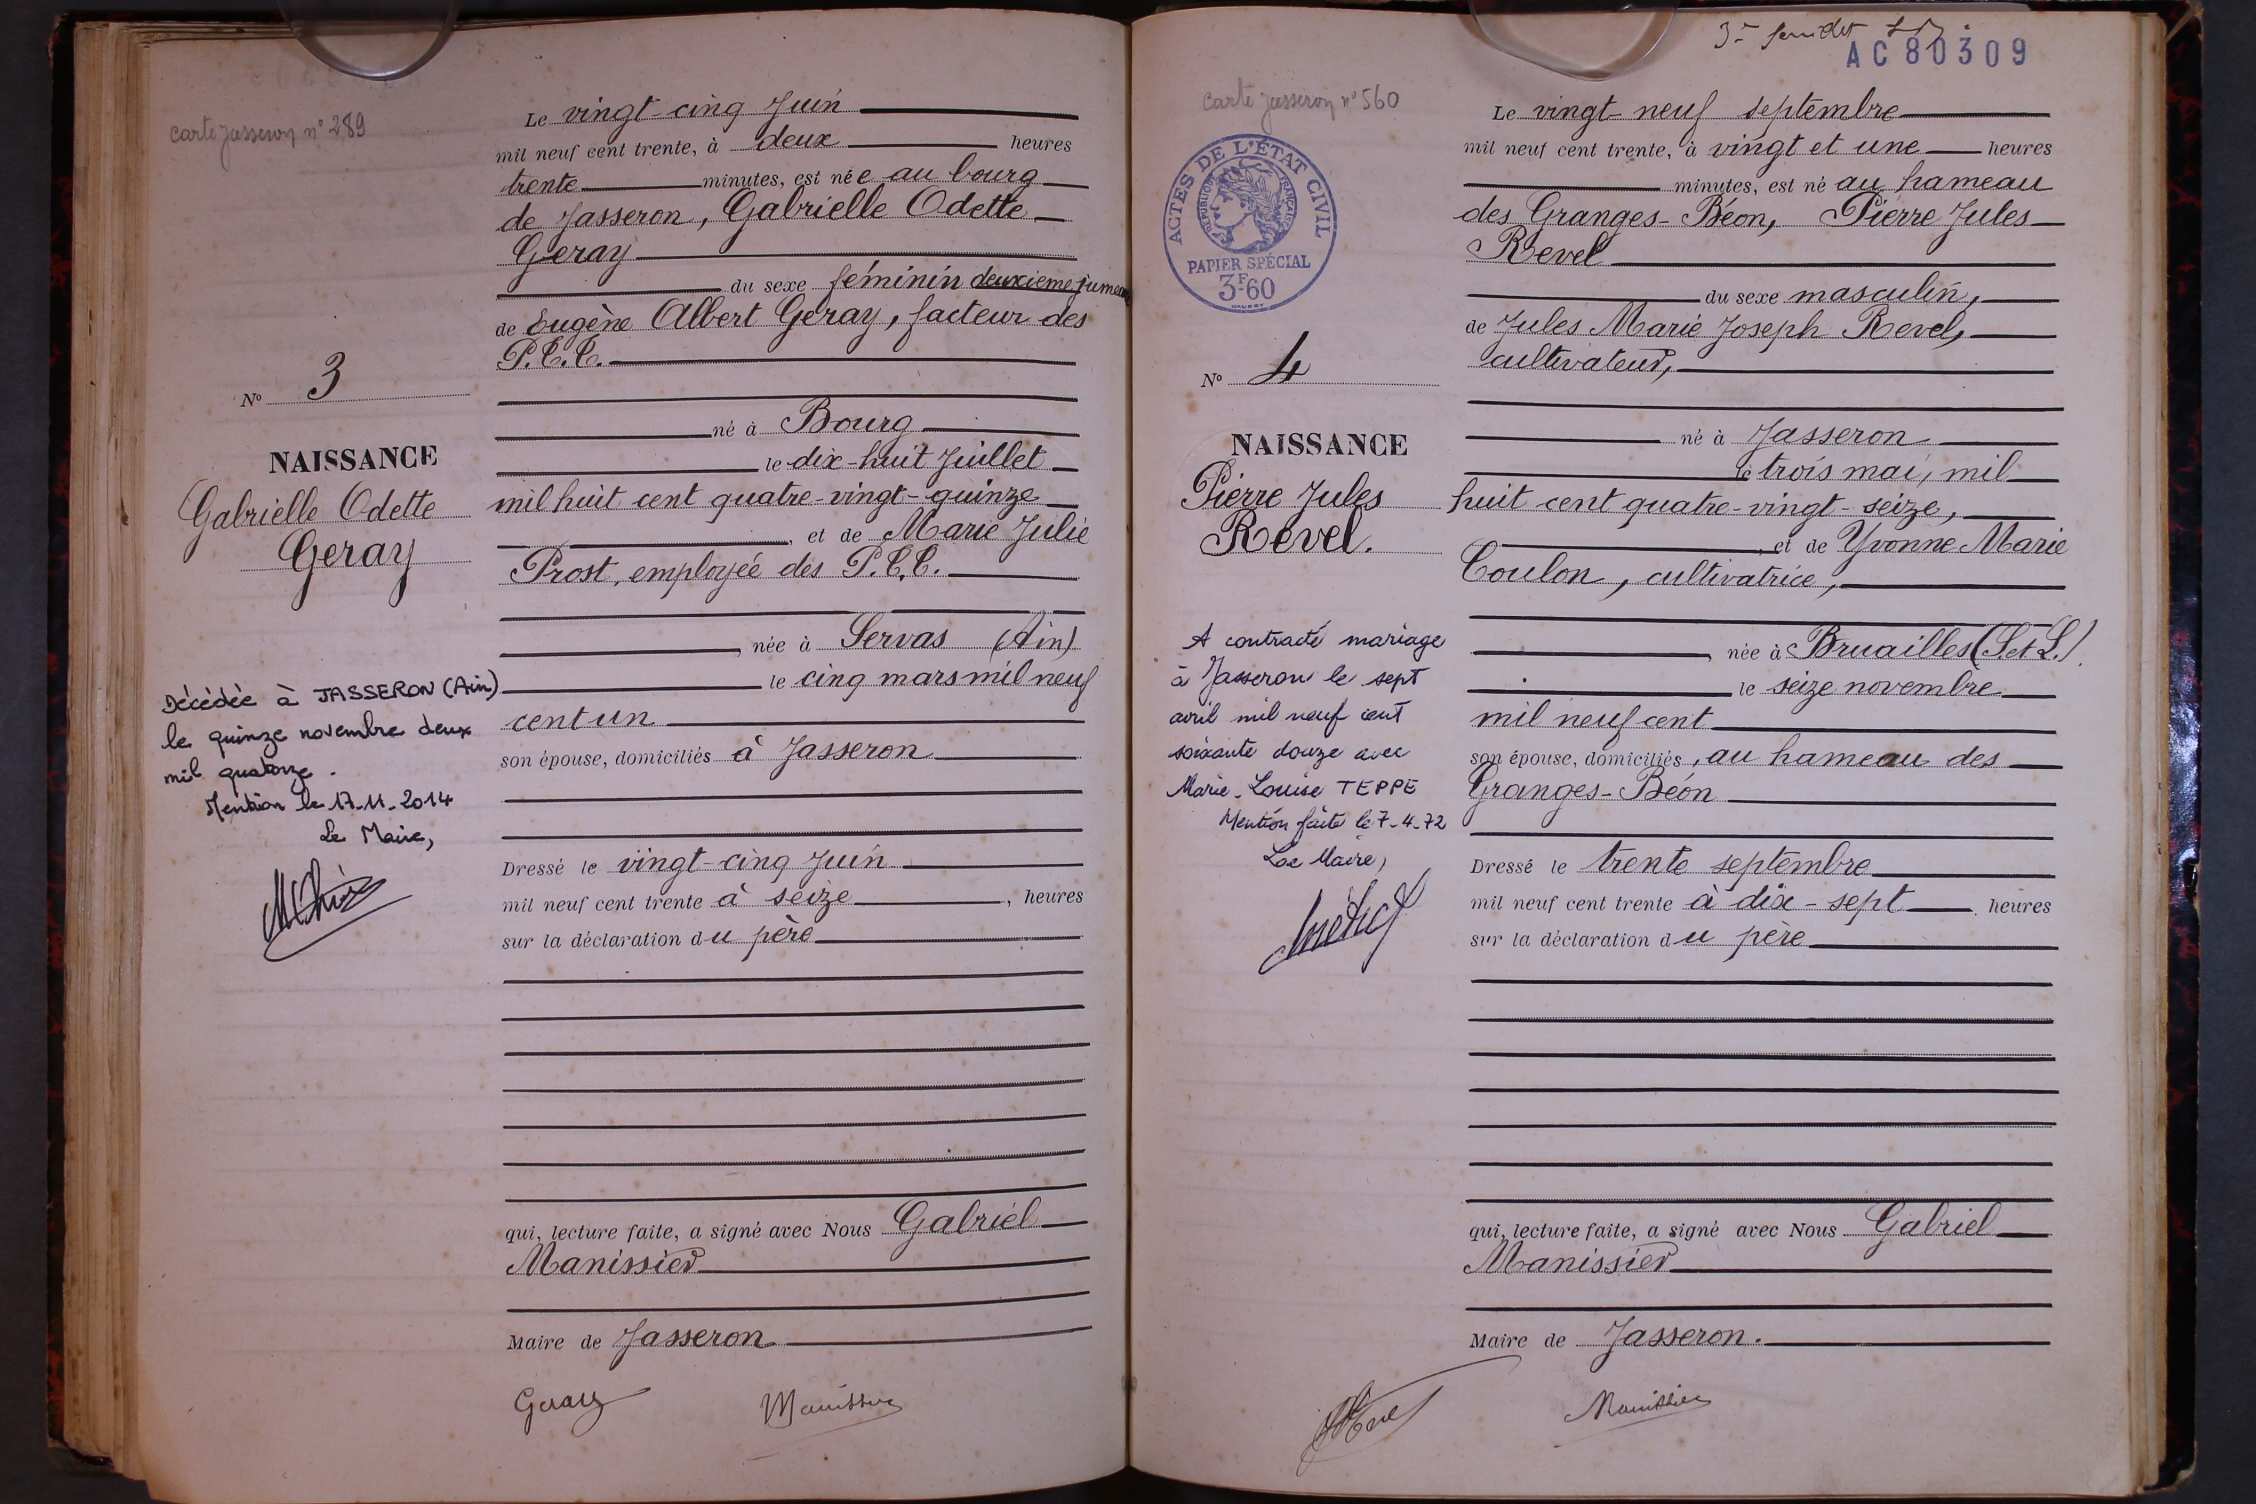 carte Jasseron n° 289
Le vingt-cinq Juin
mil neuf cent trente, à deux heures
trente minutes, est née au bourg
de Jasseron, Gabrielle Odette
Geray
du sexe féminin deuxième jumeau
de Eugène Albert Geray, facteur des
P.T.T.
N° 3
né à Bourg
NAISSANCE
le dix-huit Juillet
Gabrielle Odette
mil huit cent quatre-vingt-quinze
Geray
, et de Marie Julie
Prost, employée des P.T.T.
, née à Servas (Ain)
Décédée à JASSERON (Ain)
le cinq mars mil neuf
le quinze novembre deux
cent un
mil quatorze.
son épouse, domiciliés à Jasseron
Mention le 17-11-2014
Le Maire,
Dressé le vingt-cinq Juin
mil neuf cent trente à seize , heures
sur la déclaration du père
qui, lecture faite, a signé avec Nous Gabriel
Manissier
Maire de Jasseron
Geray Manissier
AC 80309
carte Jasseron n° 560
Le vingt-neuf septembre
mil neuf cent trente, à vingt et une heures
minutes, est né au hameau
des Granges-Béon, Pierre Jules
Revel
ACTES DE L'ÉTAT CIVIL
RÉPUBLIQUE FRANÇAISE
PAPIER SPÉCIAL
3F60
du sexe masculin,
de Jules Marie Joseph Revel,
cultivateur,
N° 4
né à Jasseron
NAISSANCE
le trois mai, mil
Pierre Jules
huit cent quatre-vingt-seize,
Revel.
, et de Yvonne Marie
Coulon, cultivatrice,
A contracté mariage
née à Bruailles (S. et L.).
à Jasseron le sept
le seize novembre
avril mil neuf cent
mil neuf cent
soixante douze avec
son épouse, domiciliés, au hameau des
Marie-Louise TEPPE
Granges-Béon
Mention faite le 7-4-72
Le Maire,
Dressé le trente septembre
mil neuf cent trente à dix-sept heures
sur la déclaration du père
qui, lecture faite, a signé avec Nous Gabriel
Manissier
Maire de Jasseron.
Manissier